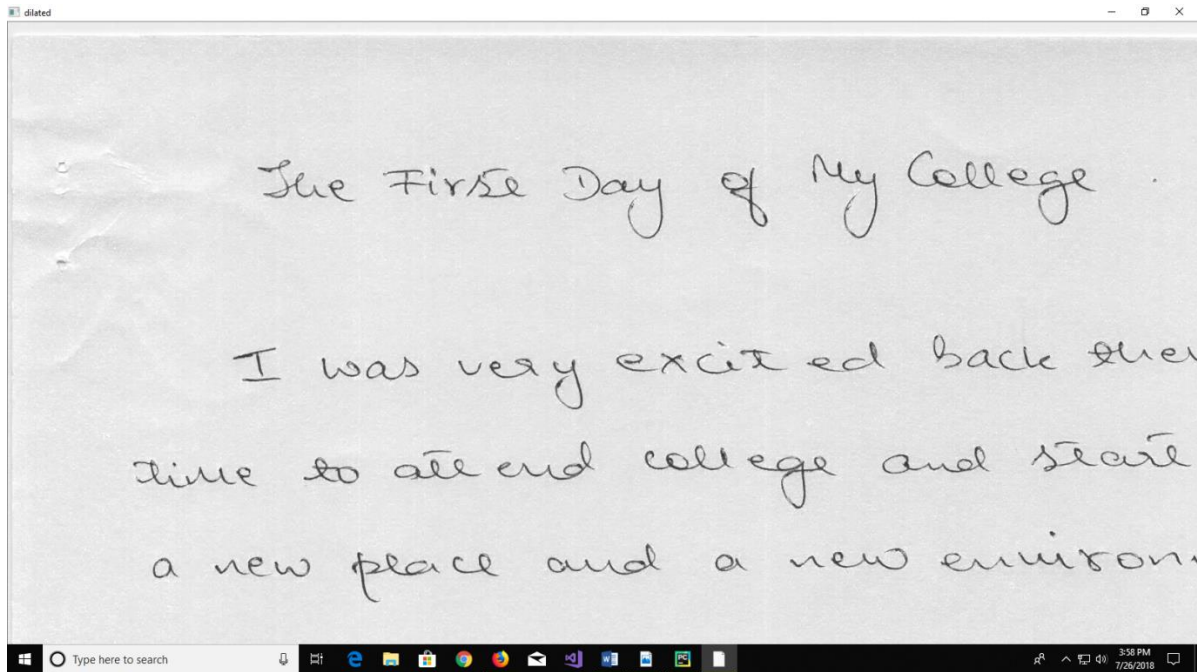 dilated
The First Day of My College .
I was very excited back ther
time to attend college and start
a new place and a new environ
Type here to search
3:58 PM
7/26/2018